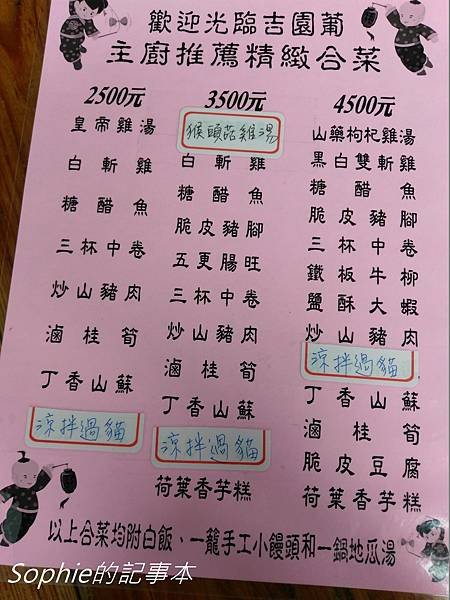 歡迎光臨吉園葡
主廚推薦精緻合菜
2500元
皇帝雞湯
白斬雞
糖醋魚
三杯中卷
炒山豬肉
滷桂筍
丁香山蘇
涼拌過貓
3500元
猴頭菇雞湯
白斬雞
糖醋魚
脆皮豬腳
五更腸旺
三杯中卷
炒山豬肉
滷桂筍
丁香山蘇
涼拌過貓
荷葉香芋糕
4500元
山藥枸杞雞湯
黑白雙斬雞
糖醋魚
脆皮豬腳
三杯中卷
鐵板牛柳
鹽酥大蝦
炒山豬肉
涼拌過貓
丁香山蘇
滷桂筍
脆皮豆腐
荷葉香芋糕
以上合菜均附白飯、一籠手工小饅頭和一鍋地瓜湯
Sophie的記事本